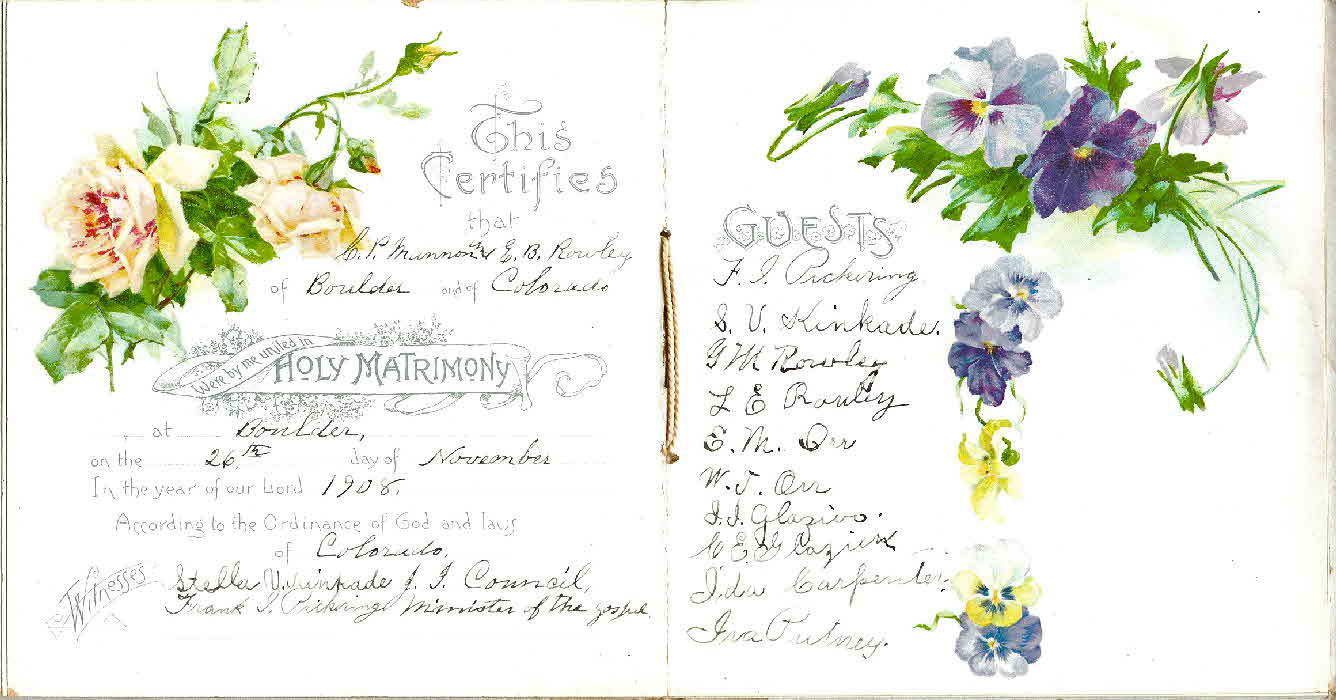 This
Certifies
that
C. P. Munnon & E. B. Rowley
of Boulder and of Colorado
Were by me united in
HOLY MATRIMONY
at Boulder,
on the 26th day of November
In the year of our Lord 1908.
According to the Ordinance of God and laws
of Colorado.
Witnesses
Stella V. Kinkade J. I. Council,
Frank I. Pickring Minister of the gospel
GUESTS
F. I. Pickering
S. V. Kinkade.
G M Rowley
L E Rowley
E. M. Orr
W. J. Orr
C E Glazier
Ida Carpenter.
Iva Putney.